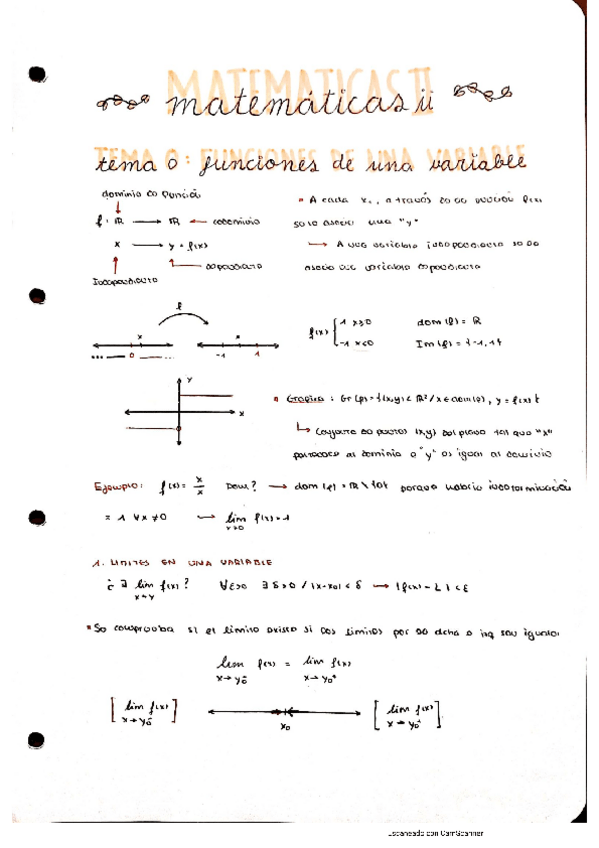 MATEMATICAS II
matemáticas ii
TEMA 0: FUNCIONES DE UNA VARIABLE
tema 0: funciones de una variable
dominio de función
f: ℝ → ℝ ← codominio
x → y = f(x)
Independiente
dependiente
• A cada x, a través de la función f(x)
solo asocia una "y"
→ A una variable independiente se le
asocia una variable dependiente
f
x x
0 -1 1
f(x) { 1 x≥0
-1 x<0
dom(f) = ℝ
Im(f) = {-1, 1}
y
x
• Gráfica: Gr(f) = {(x,y) ∈ ℝ²/x ∈ dom(f), y = f(x)}
↳ Conjunto de puntos (x,y) del plano tal que "x"
pertenece al dominio e "y" es igual al dominio
Ejemplo: f(x) = x/x Dom? → dom(f) = ℝ \ {0} porque habría indeterminación
= 1 ∀x ≠ 0 → lim x→0 f(x) = 1
1. LIMITES EN UNA VARIABLE
¿∃ lim x→y f(x)? ∀ε>0 ∃δ>0 / |x-x0| < δ → |f(x) - L| < ε
• Se comprueba si el límite existe si los límites por la dcha e izq son iguales
lim x→y0⁻ f(x) = lim x→y0⁺ f(x)
[lim x→y0⁻ f(x)] x0 [lim x→y0⁺ f(x)]
Escaneado con CamScanner